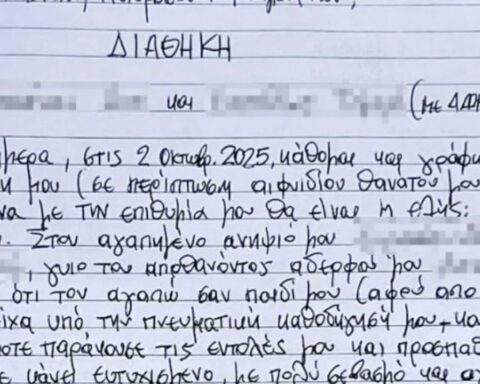 ΔΙΑΘΗΚΗ
και (με ΑΦΜ
μερα, στις 2 Οκτωβ. 2025, κάθομαι και γράφω
κη μου (σε περίπτωση αιφνιδίου θανάτου μου
να με την επιθυμία μου θα είναι η εξής:
Στον αγαπημένο ανηψιό μου
, γυιο του αποθανόντος αδερφού μου
ότι τον αγαπώ σαν παιδί μου (αφού απο
είχα υπό την πνευματική καθοδήγησή μου, και
ποτε παράκουσε τις εντολές μου και προσπαθ
κάνει ευτυχισμένο, με πολύ σεβασμό και αγ